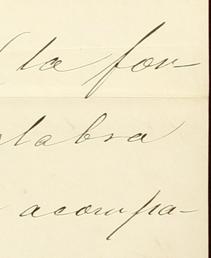 la for-
labra
acompa-